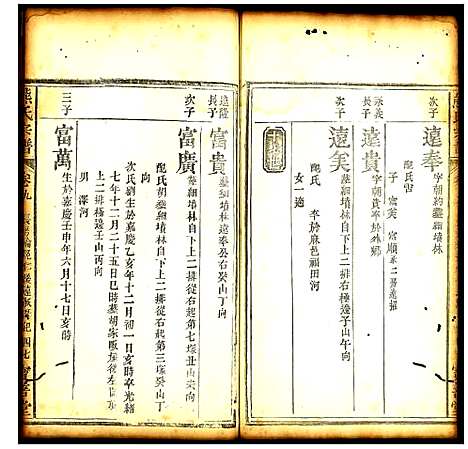 次子
遠奉
字朝約葬細墳林
配氏雷
子 富美 富順
永義
長子
遠貴
字朝貴卒於外鄉
次子
遠美
葬細墳林自下上二排右極邊子山午向
配氏 卒於麻邑福田河
女一適
遠隆
長子
富貴
葬細墳林遠奉公右癸山丁向
次子
富廣
葬細墳林自下上二排從右起第七塚丑山未向
配氏胡葬細墳林自下上二排從右起第三塚癸山丁
向
次氏劉生於嘉慶乙亥年十二月初一日亥時卒光緒
七年十二月二十五日巳時葬胡家畈
上二排極邊壬山丙向
男 澤河
三子
富萬
生於嘉慶壬申年六月十七日亥時
熊氏宗譜
卷九